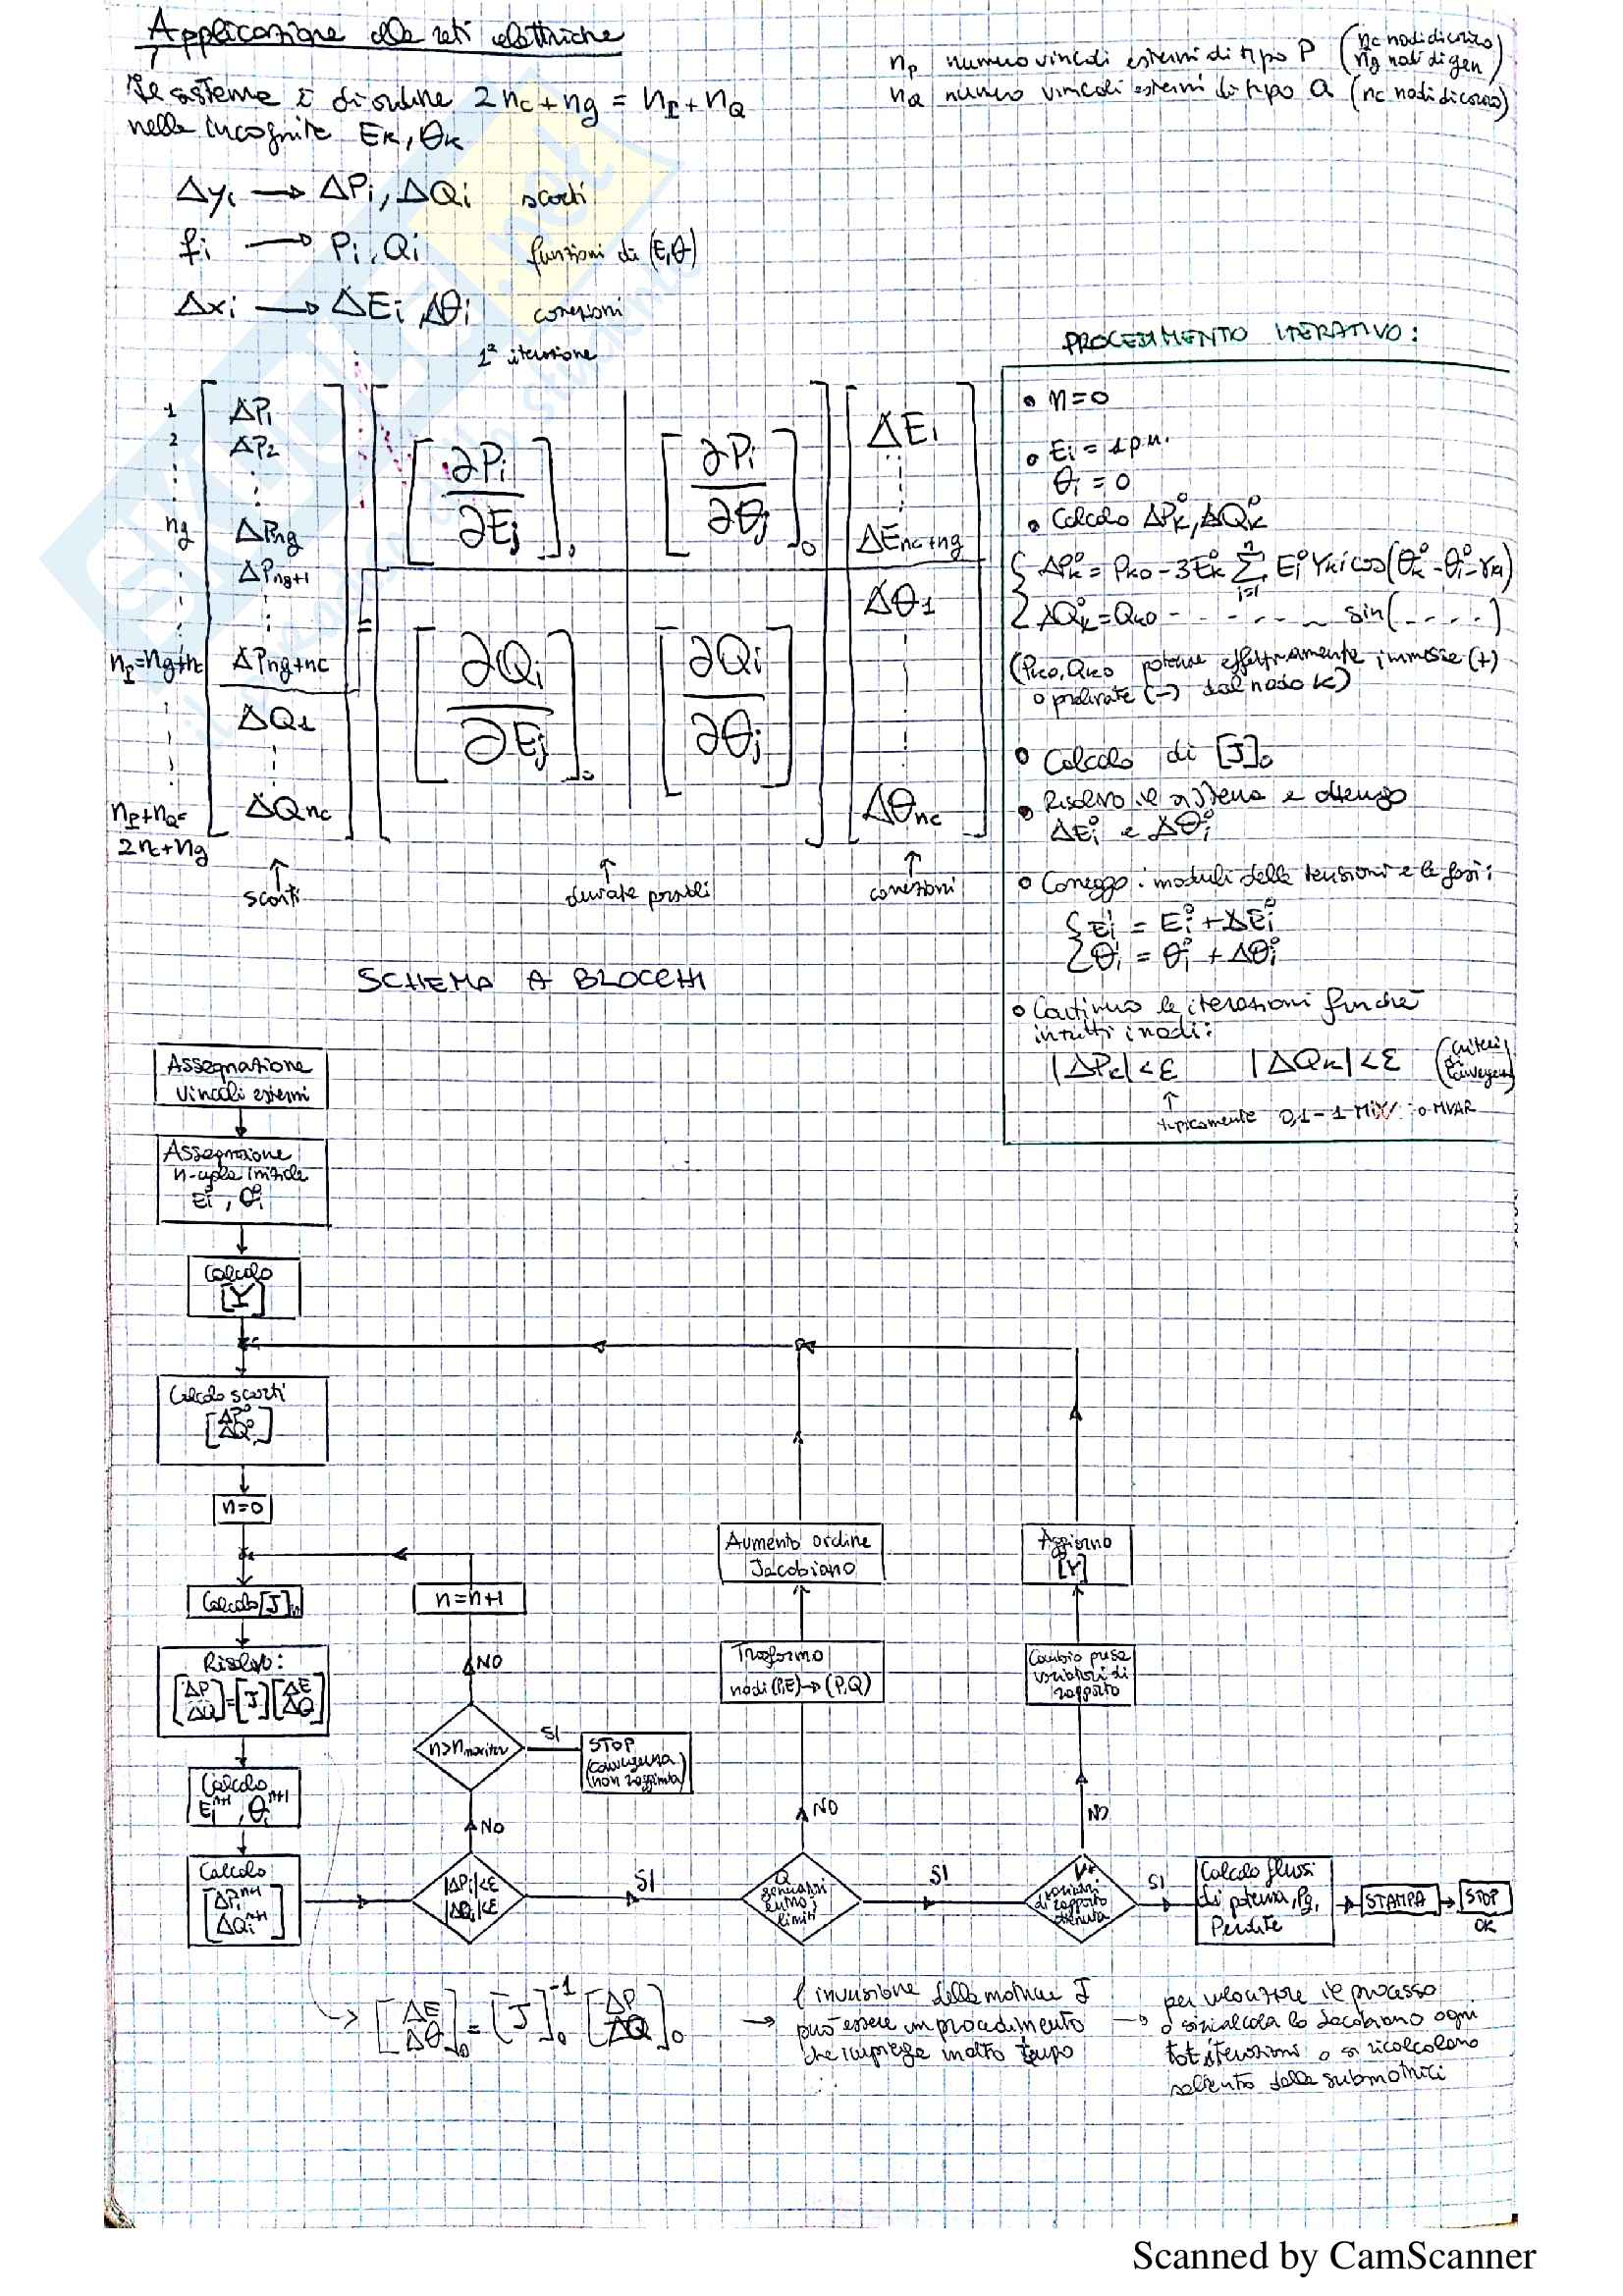 Applicazione alle reti elettriche
Il sistema è di ordine 2nc + ng = nP + nQ
nelle incognite EK, θK
nP numero vincoli esterni di tipo P (nc nodi di carico
ng nodi di gen)
nQ numero vincoli esterni di tipo Q (nc nodi di carico)
Δyi → ΔPi, ΔQi scarti
fi → Pi, Qi funzioni di (E,θ)
Δxi → ΔEi Δθi correzioni
1ª iterazione
1 ΔP1
2 ΔP2
ng ΔPng
ΔPng+1
nP=ng+nc ΔPng+nc
ΔQ1
nP+nQ= ΔQnc
2nc+ng
=
[∂Pi/∂Ej]0 [∂Pi/∂θj]0
[∂Qi/∂Ej]0 [∂Qi/∂θj]
ΔEi
ΔEnc+ng
Δθ1
Δθnc
↑ scarti
↑ derivate parziali
↑ correzioni
PROCEDIMENTO ITERATIVO:
• n=0
• Ei = 1 p.u.
θi = 0
• Calcolo ΔPK°, ΔQK°
{ ΔPK° = PK0 - 3EK° Σ(i=1..n) Ei° YKi cos(θK° - θi° - γKi)
{ ΔQK° = QK0 - - - - - - sin(- - - -)
(PK0, QK0 potenze effettivamente immesse (+)
o prelevate (-) dal nodo K)
• Calcolo di [J]0
• Risolvo il sistema e ottengo
ΔEi° e Δθi°
• Correggo i moduli delle tensioni e le fasi:
{ Ei¹ = Ei° + ΔEi°
{ θi¹ = θi° + Δθi°
• Continuo le iterazioni finché
in tutti i nodi:
|ΔPK| < ε |ΔQK| < ε (criteri
di
convergenza)
↑
tipicamente 0,1 - 1 MW o MVAR
SCHEMA A BLOCCHI
Assegnazione
vincoli esterni
Assegnazione
n-upla iniziale
Ei°, θi°
Calcolo
[Y]
Calcolo scarti
[ΔP°
ΔQ°]
n=0
Calcolo [J]n
n=n+1
Aumento ordine
Jacobiano
Aggiorno
[Y]
Risolvo:
[ΔP
ΔQ] = [J] [ΔE
ΔQ]
NO
Trasformo
nodi (P,E) → (P,Q)
Cambio prese
variatori di
rapporto
n>nmaxiter
SI
STOP
(convergenza
non raggiunta)
Calcolo
Ei^n+1, θi^n+1
NO
NO
NO
Calcolo
[ΔPi^n+1
ΔQi^n+1]
|ΔPi|<ε
|ΔQi|<ε
SI
Q
generatori
entro i
limiti
SI
V*
variatori
di rapporto
ottenuta
SI
Calcolo flussi
di potenza, Pg,
Perdite
STAMPA
STOP
OK
→ [ΔE
Δθ]0 = [J]0^-1 [ΔP
ΔQ]0
→ l'inversione della matrice J
può essere un procedimento
che impiega molto tempo
→ per velocizzare il processo
o si ricalcola lo Jacobiano ogni
tot iterazioni o si ricalcolano
soltanto delle submatrici
Scanned by CamScanner